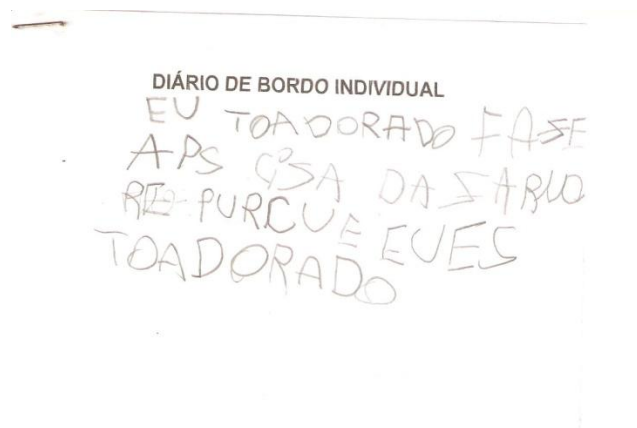 DIÁRIO DE BORDO INDIVIDUAL
EU TOADORADO FASE
APS CSA DAS ARVO
RE PURCUE EUES
TOADORADO